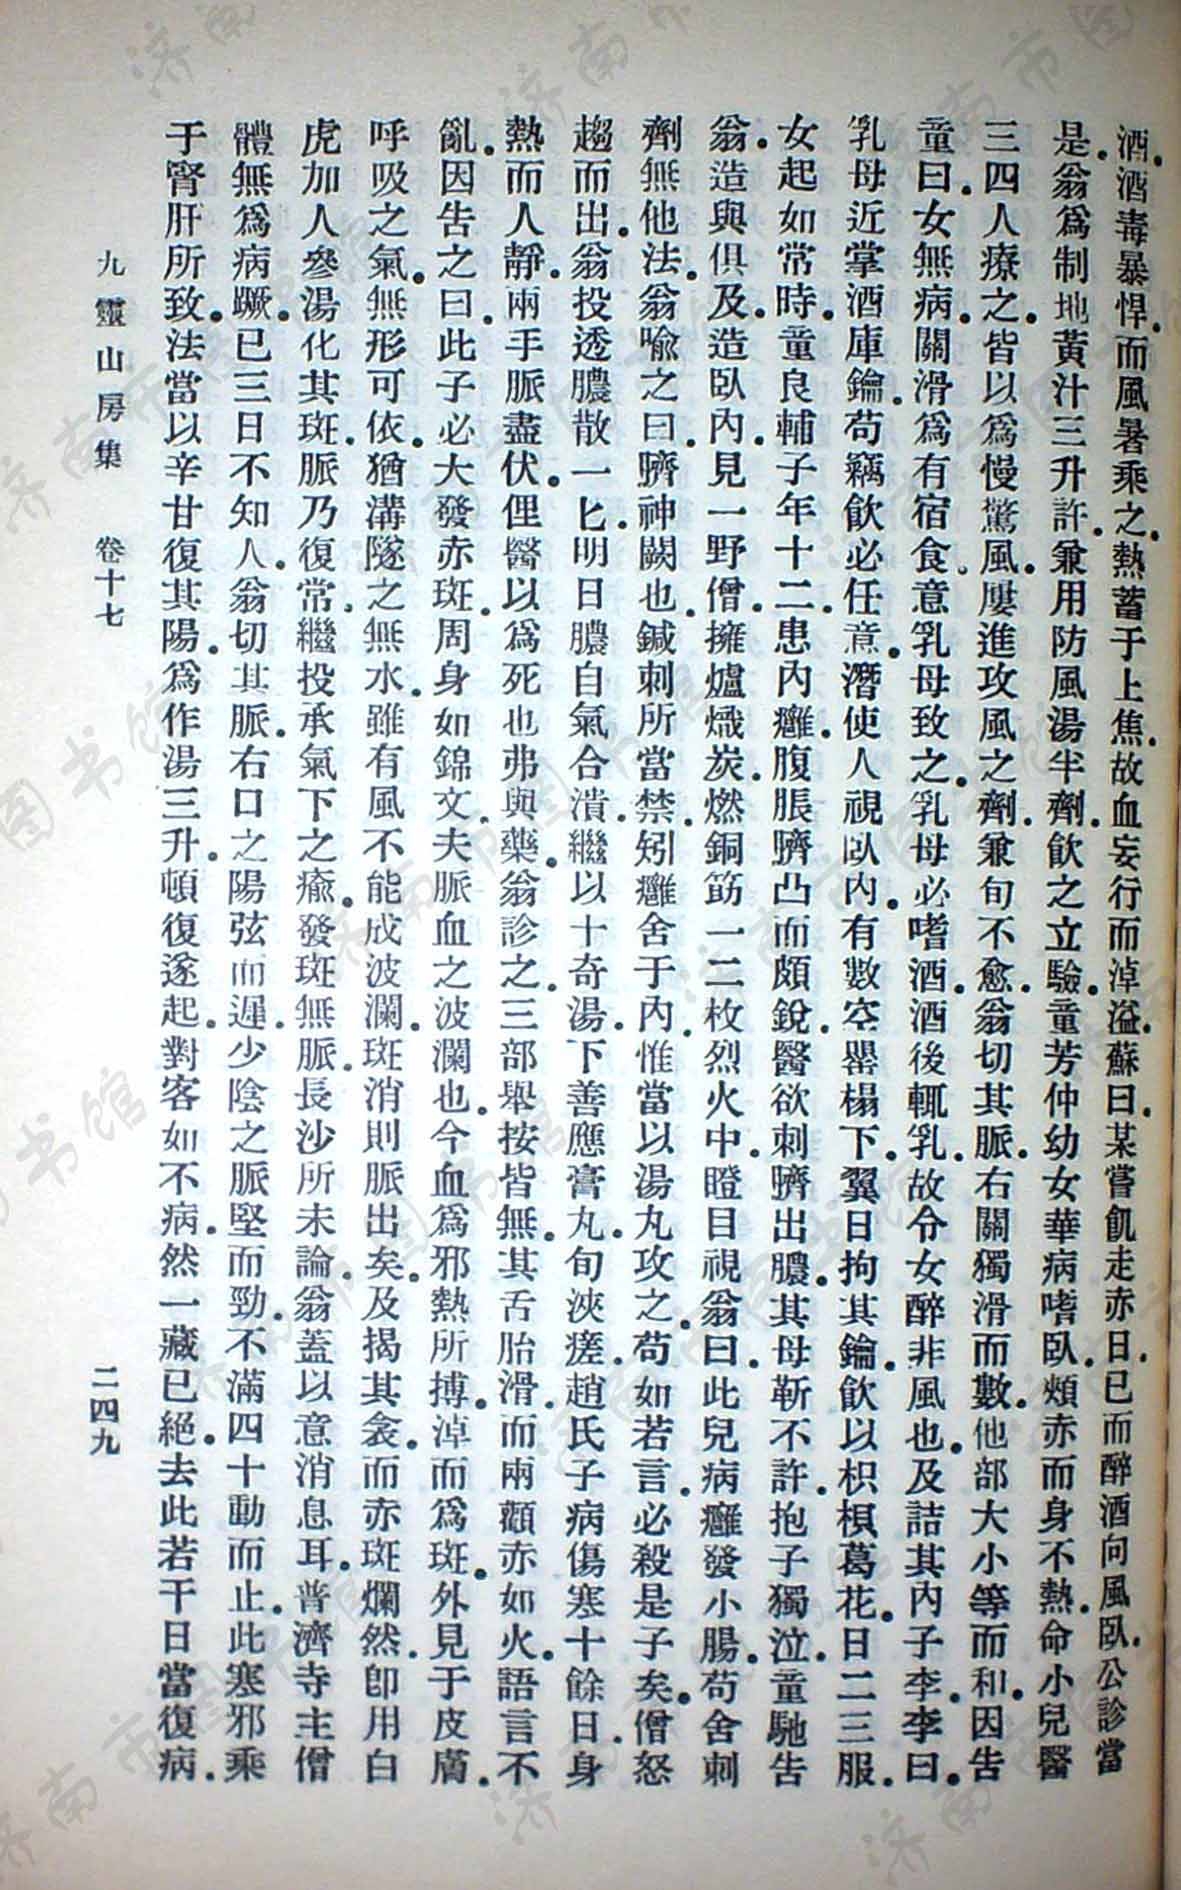 酒。酒毒暴悍。而風暑乘之。熱蓄于上焦。故血妄行而淖溢。蘇曰。某嘗飢走赤日。已而醉酒向風臥。公診當
是。翁爲制地黃汁三升許。兼用防風湯半劑。飲之立驗。童芳仲幼女華病嗜臥。頰赤而身不熱。命小兒醫
三四人療之。皆以爲慢驚風。屢進攻風之劑。兼旬不愈。翁切其脈。右關獨滑而數。他部大小等而和。因告
童曰。女無病。關滑爲有宿食。意乳母致之。乳母必嗜酒。酒後輒乳。故令女醉非風也。及詰其內子李。李曰。
乳母近掌酒庫鑰。苟竊飲必任意。潛使人視臥內。有數空罌榻下。翼日拘其鑰。飲以枳椇葛花。日二三服。
女起如常時。童良輔子年十二。患內癰。腹脹臍凸而頗銳。醫欲刺臍出膿。其母靳不許。抱子獨泣。童馳告
翁。造與俱。及造臥內。見一野僧。擁爐熾炭。燃銅筯一二枚烈火中。瞪目視翁。曰。此兒病癰發小腸。苟舍刺
劑無他法。翁喩之曰。臍神闕也。鍼刺所當禁。矧癰舍于內。惟當以湯丸攻之。苟如若言。必殺是子矣。僧怒
趨而出。翁投透膿散一匕。明日膿自氣合潰。繼以十奇湯。下善應膏丸。旬浹瘥。趙氏子病傷寒十餘日。身
熱而人靜。兩手脈盡伏。俚醫以爲死也弗與藥。翁診之。三部舉按皆無。其舌胎滑。而兩顴赤如火。語言不
亂。因告之曰。此子必大發赤斑。周身如錦文。夫脈血之波瀾也。今血爲邪熱所搏。淖而爲斑。外見于皮膚。
呼吸之氣。無形可依。猶溝隧之無水。雖有風不能成波瀾。斑消則脈出矣。及揭其衾。而赤斑爛然。卽用白
虎加人參湯化其斑。脈乃復常。繼投承氣下之瘉。發斑無脈。長沙所未論。翁蓋以意消息耳。普濟寺主僧
體無爲病蹶。已三日不知人。翁切其脈。右口之陽弦而遲。少陰之脈堅而勁。不滿四十動而止。此寒邪乘
于腎肝所致。法當以辛甘復其陽。爲作湯三升。頓復遂起。對客如不病。然一藏已絕。去此若干日當復病。
九靈山房集　卷十七　二四九